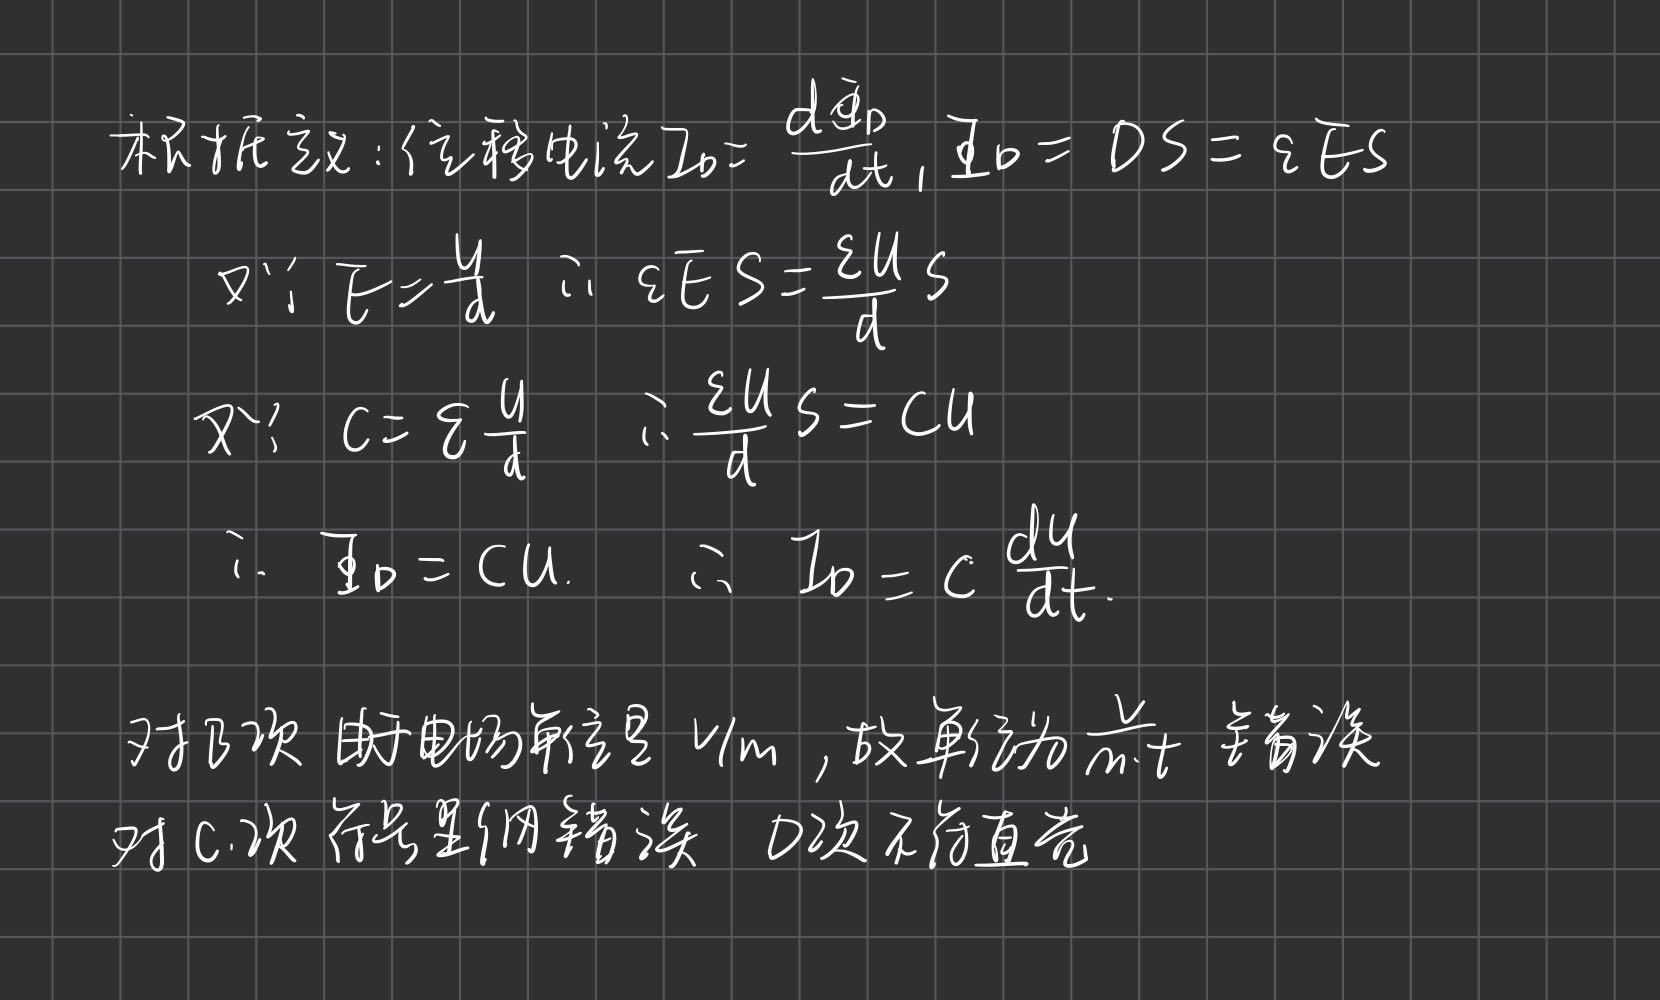 根据定义:位移电流 I_D = dΦ_D/dt, Φ_D = DS = εES
又∵ E = U/d ∴ εES = εU/d S
又∵ C = ε U/d ∴ εU/d S = CU
∴ Φ_D = CU. ∴ I_D = C dU/dt.
对B项 由于电场单位是 V/m , 故单位为 V/m·t 错误
对C.项 符号 错误 D项不符